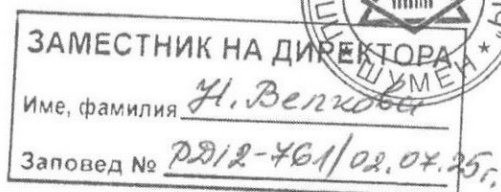 ЗАМЕСТНИК НА ДИРЕКТОРА
ШУМЕН *
Име, фамилия Н. Велкова
Заповед № РД12-761/02.07.25г.